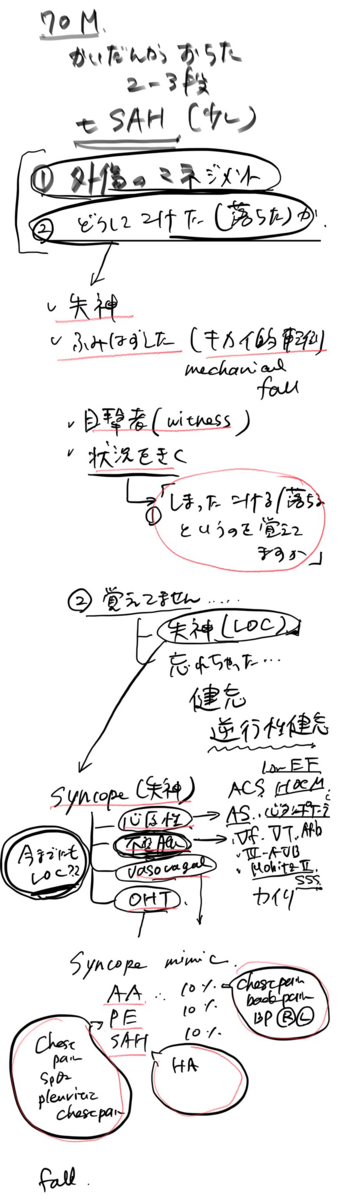 70 M.
かいだんから おちた
2-3段
t SAH (少し)
① 外傷のマネジメント
② どうして こけた (落ちた) か.
失神
ふみはずした (キカイ的転倒)
mechanical
fall
目撃者 (witness)
状況をきく
① 「しまった こける/落ちる
というのを覚えて
ますか」
② 覚えてません……
失神 (LOC)
忘れちゃった…
健忘
逆行性健忘
Syncope (失神)
今までにも
LOC??
心原性
不整脈
vasovagal
OHT
low EF
ACS. HOCM
AS. 心タンポナーデ
VF. VT. Afib
III-AVB
Mobitz II
SSS
カイリ
Syncope mimic
AA 10%
PE 10%
SAH 10%
chest pain
back pain
BP R L
Chest
pain
SpO2
pleuritic
chest pain
HA
fall.